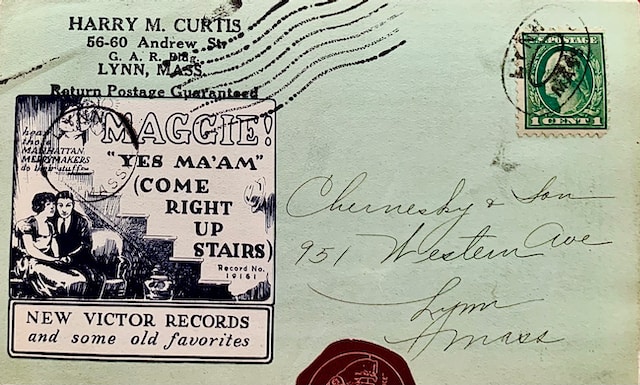 HARRY M. CURTIS
56-60 Andrew Str.
G. A. R. Bldg.
LYNN, MASS.
Return Postage Guaranteed
hear
those
MANHATTAN
MERRYMAKERS
do their stuff
MAGGIE!
"YES MA'AM"
(COME
RIGHT
UP
STAIRS)
Record No.
19161
NEW VICTOR RECORDS
and some old favorites
LYNN
MASS
LYNN
MASS
POSTAGE
1 CENT 1
Chernesky & Son
951 Western Ave
Lynn
Mass